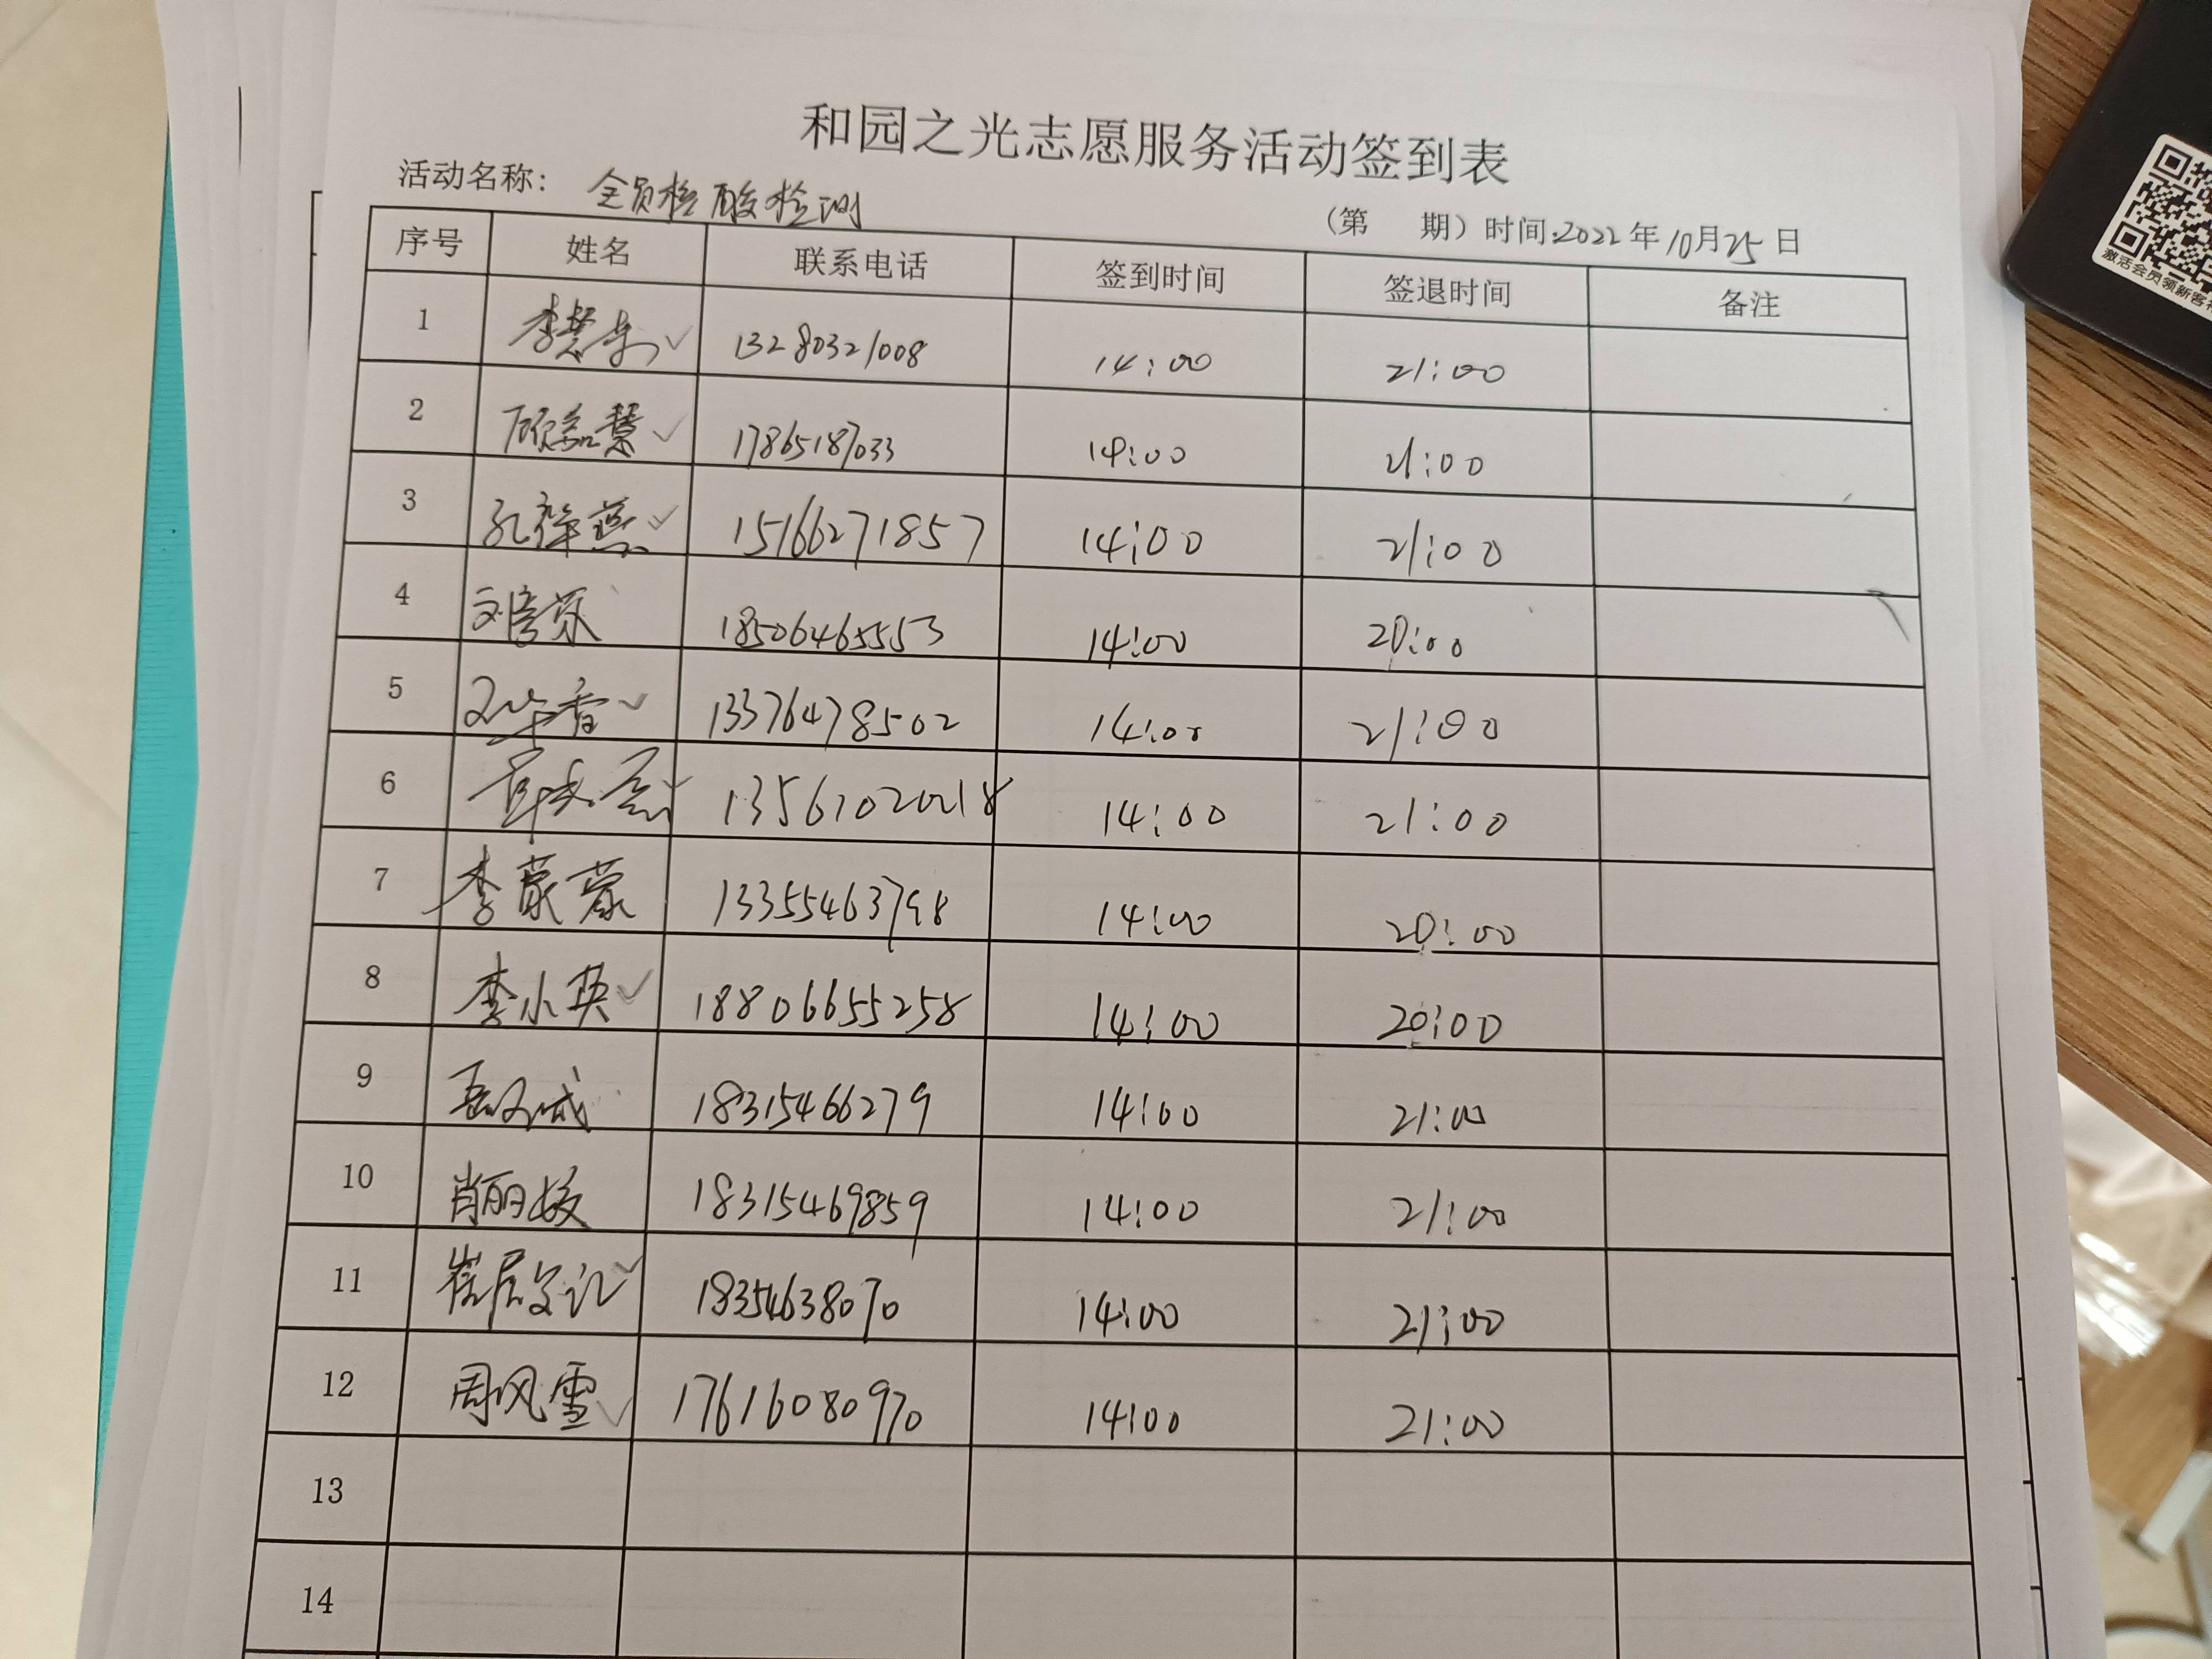 和园之光志愿服务活动签到表
活动名称: 全员核酸检测
(第 期) 时间:2022年10月25日
序号 姓名 联系电话 签到时间 签退时间 备注
1 李慧 13280321008 14:00 21:00
2 顾磊慧 17865187033 14:00 21:00
3 孔祥燕 15166271857 14:00 21:00
4 刘 18506465553 14:00 20:00
5 香 13376478502 14:00 21:00
6 14:00 21:00
7 李蒙蒙 13355463798 14:00 20:00
8 李小英 18806655258 14:00 20:00
9 18315466279 14:00 21:00
10 肖丽姣 18315469859 14:00 21:00
11 崔 18354638070 14:00 21:00
12 周风雪 17616080970 14:00 21:00
13
14
激活会员领新客